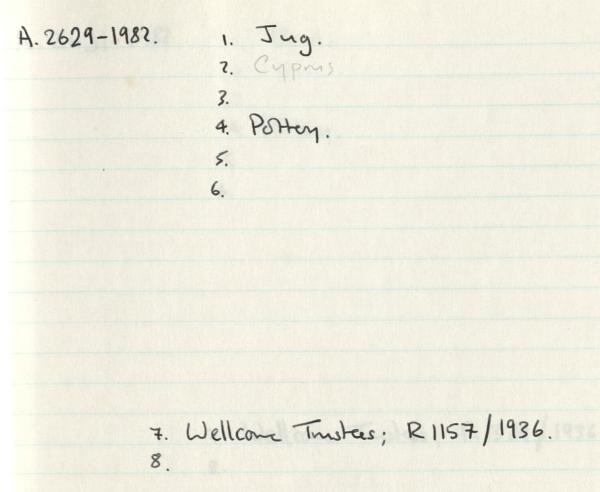 A. 2629-1982. 1. Jug.
2. Cyprus
3.
4. Pottery.
5.
6.
7. Wellcome Trustees; R 1157/1936.
8.